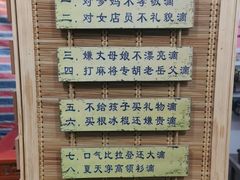 一、对爹妈不孝敬滴
二、对女店员不礼貌滴
三、嫌大母娘不漂亮滴
四、打麻将专胡老岳父滴
五、不给孩子买礼物滴
六、买根冰棍还嫌贵滴
七、口气比拉登还大滴
八、夏天穿高领衫滴